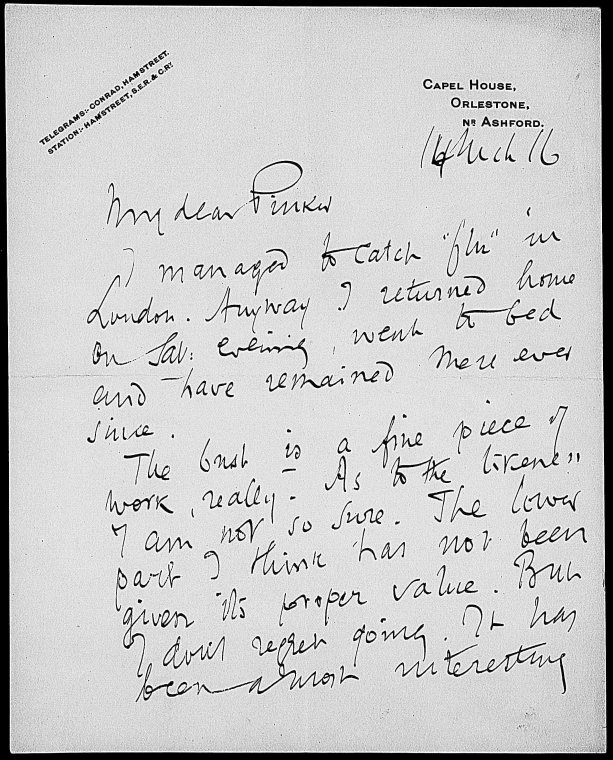 TELEGRAMS:- CONRAD, HAMSTREET.
STATION:- HAMSTREET, S.E.R. & C.RY.
CAPEL HOUSE,
ORLESTONE,
NR ASHFORD.
14 Mch 16
My dear Pinker
I managed to catch "flu" in
London. Anyway I returned home
on Sat: evening, went to bed
and have remained there ever
since.
The bust is a fine piece of
work, really. As to the likeness
I am not so sure. The lower
part I think has not been
given its proper value. But
I don't regret going. It has
been a most interesting